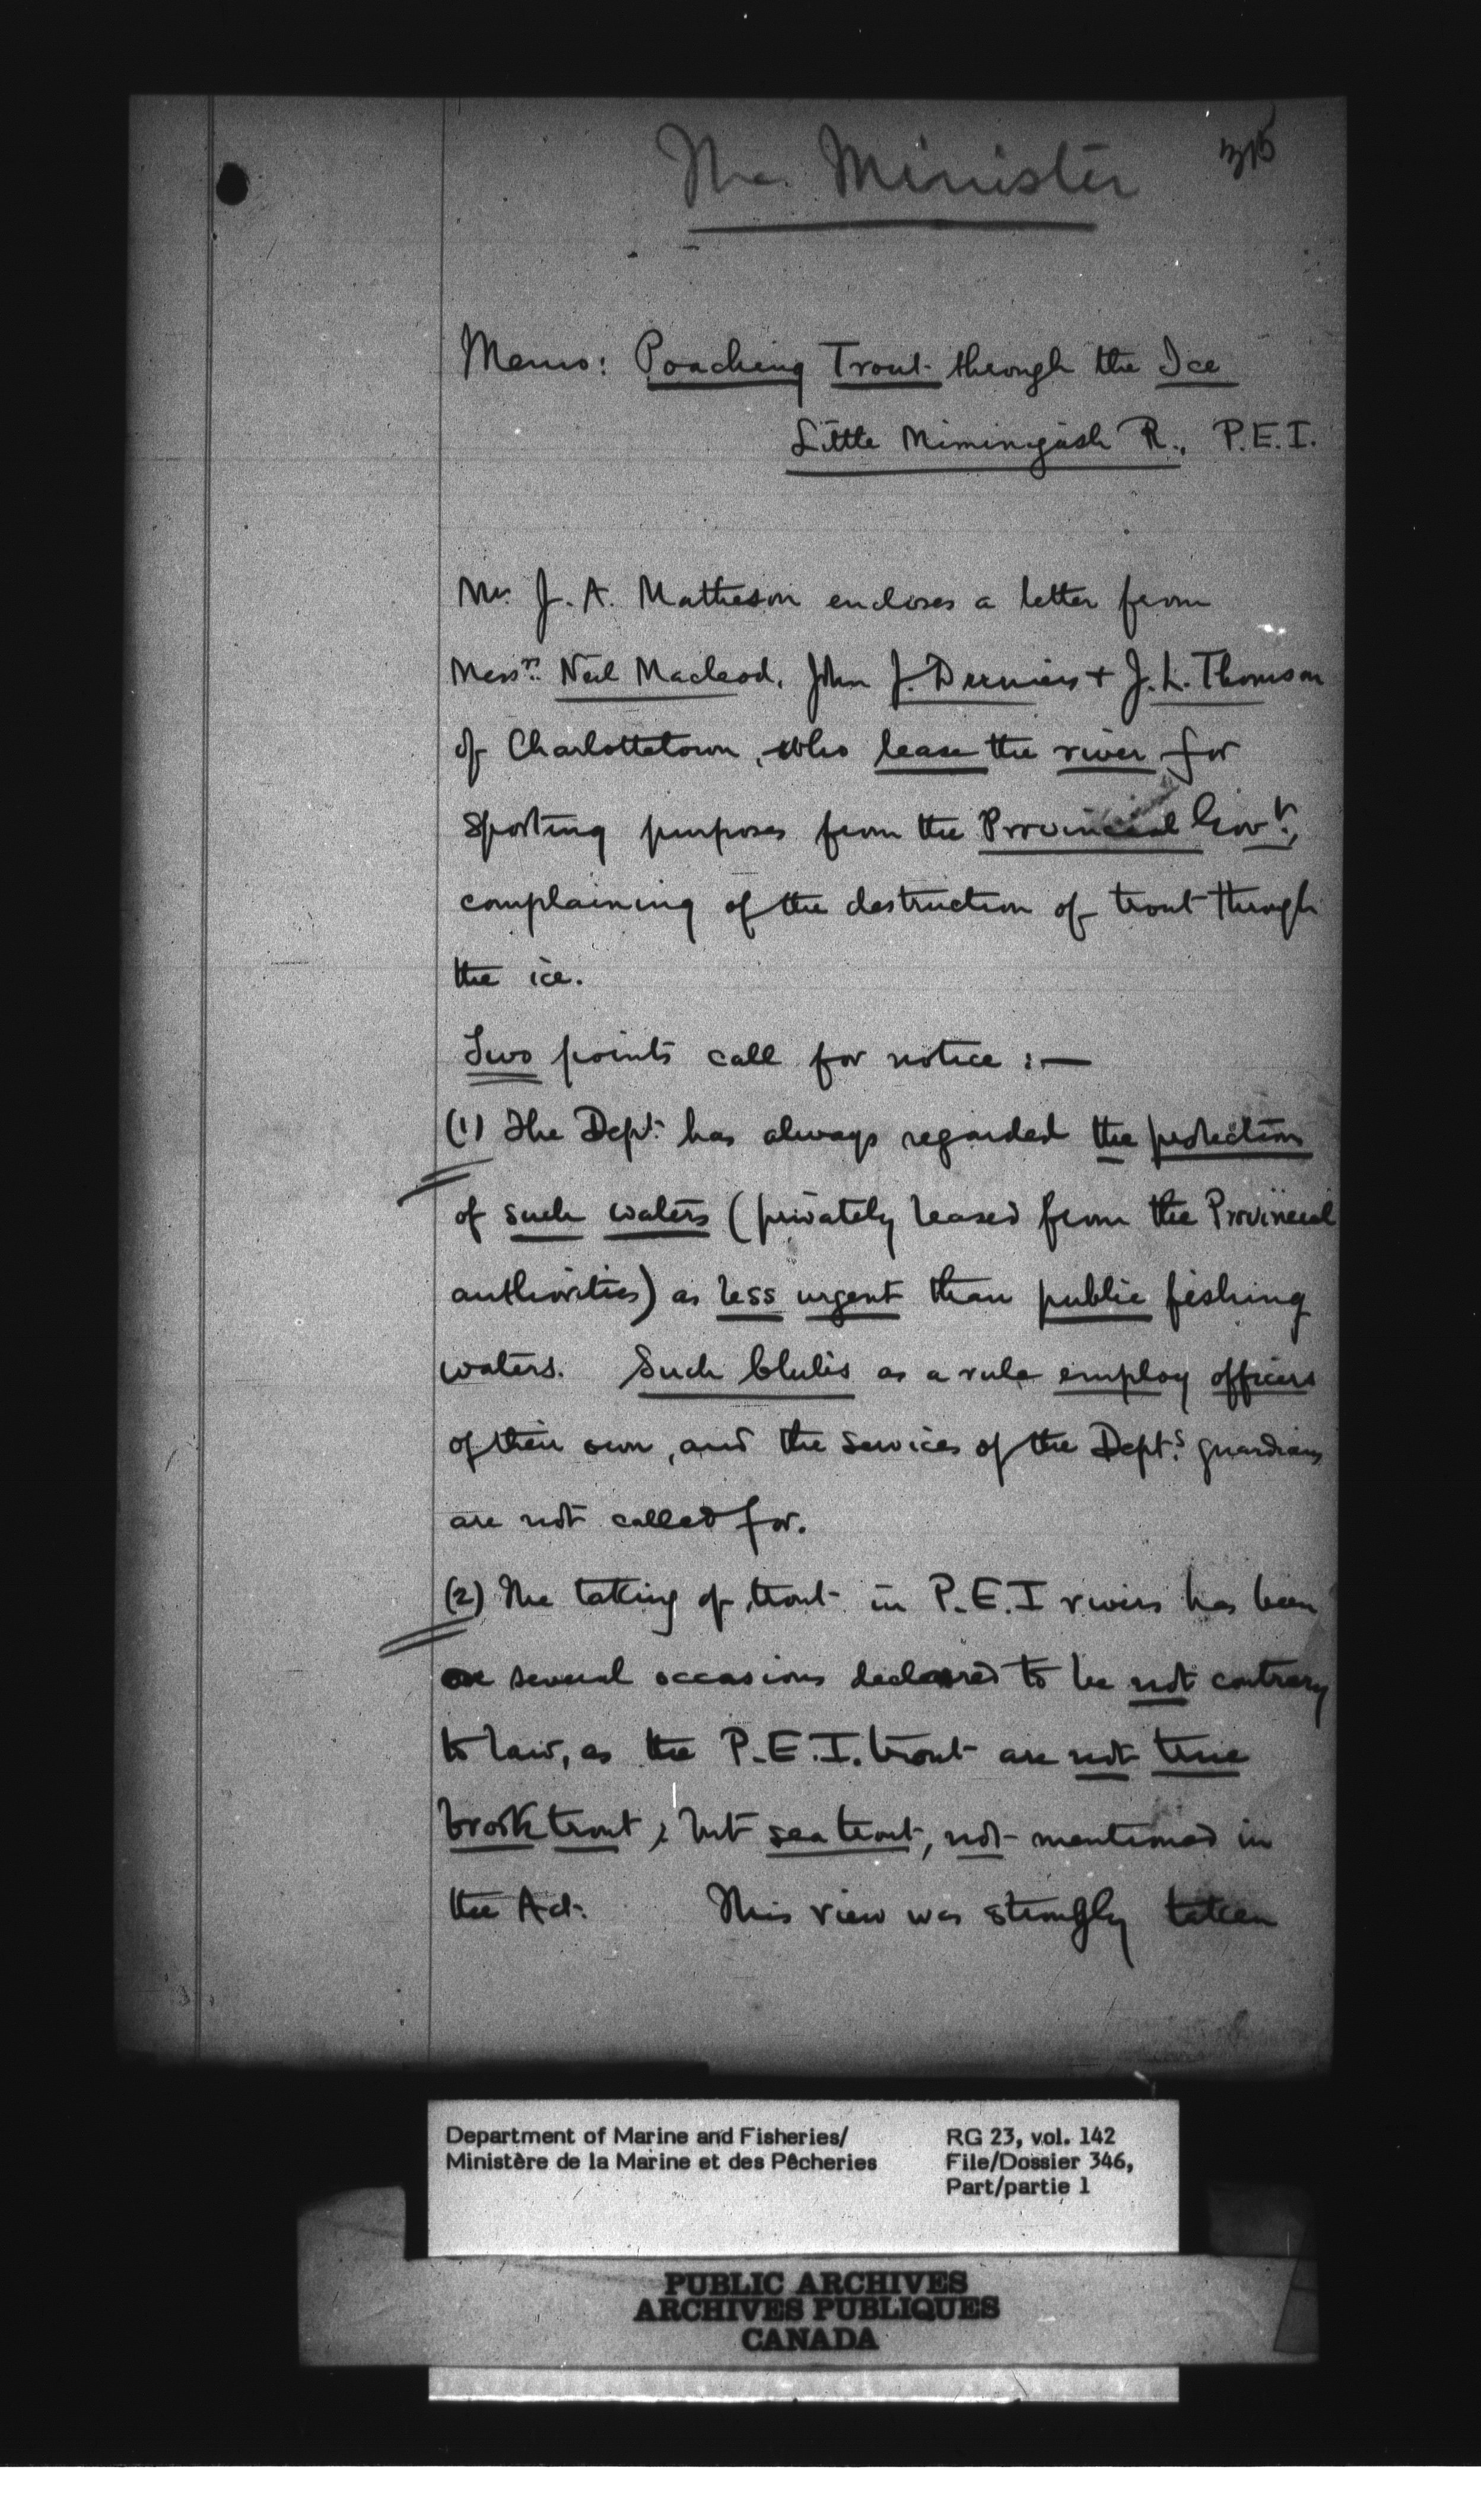 The Minister
315
Memo: Poaching Trout through the Ice
Little Miminigash R., P.E.I.
Mr. J. A. Matheson encloses a letter from
Messrs. Neil Macleod, John J. & J. L. Thomson
of Charlottetown, who lease the river for
sporting purposes from the Provincial Govt.,
complaining of the destruction of trout through
the ice.
Two points call for notice :—
(1) The Dept. has always regarded the protection
of such waters (privately leased from the Provincial
authorities) as less urgent than public fishing
waters. Such Clubs as a rule employ officers
of their own, and the services of the Dept.s guardians
are not called for.
(2) The taking of trout in P.E.I rivers has been
on several occasions declared to be not contrary
to law, as the P.E.I. trout are not true
brook trout; but sea trout, not mentioned in
the Act. This view was strongly taken
Department of Marine and Fisheries/
Ministère de la Marine et des Pêcheries
RG 23, vol. 142
File/Dossier 346,
Part/partie 1
PUBLIC ARCHIVES
ARCHIVES PUBLIQUES
CANADA